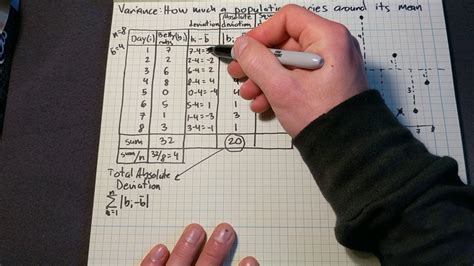 Variance: How much a population varies around its mean
n=8
b̄=4
deviation Absolute deviation
Day(i) bᵢ-b̄
1 7 7-4=
2 2 2-4=-2
3 6 6-4=2
4 8 8-4=4 4
5 0 0-4=-4 4
6 5 5-4=1 1
7 1 1-4=-3 3
8 3 3-4=-1 1
sum 32 20
sum/n 32/8=4
Total Absolute
Deviation